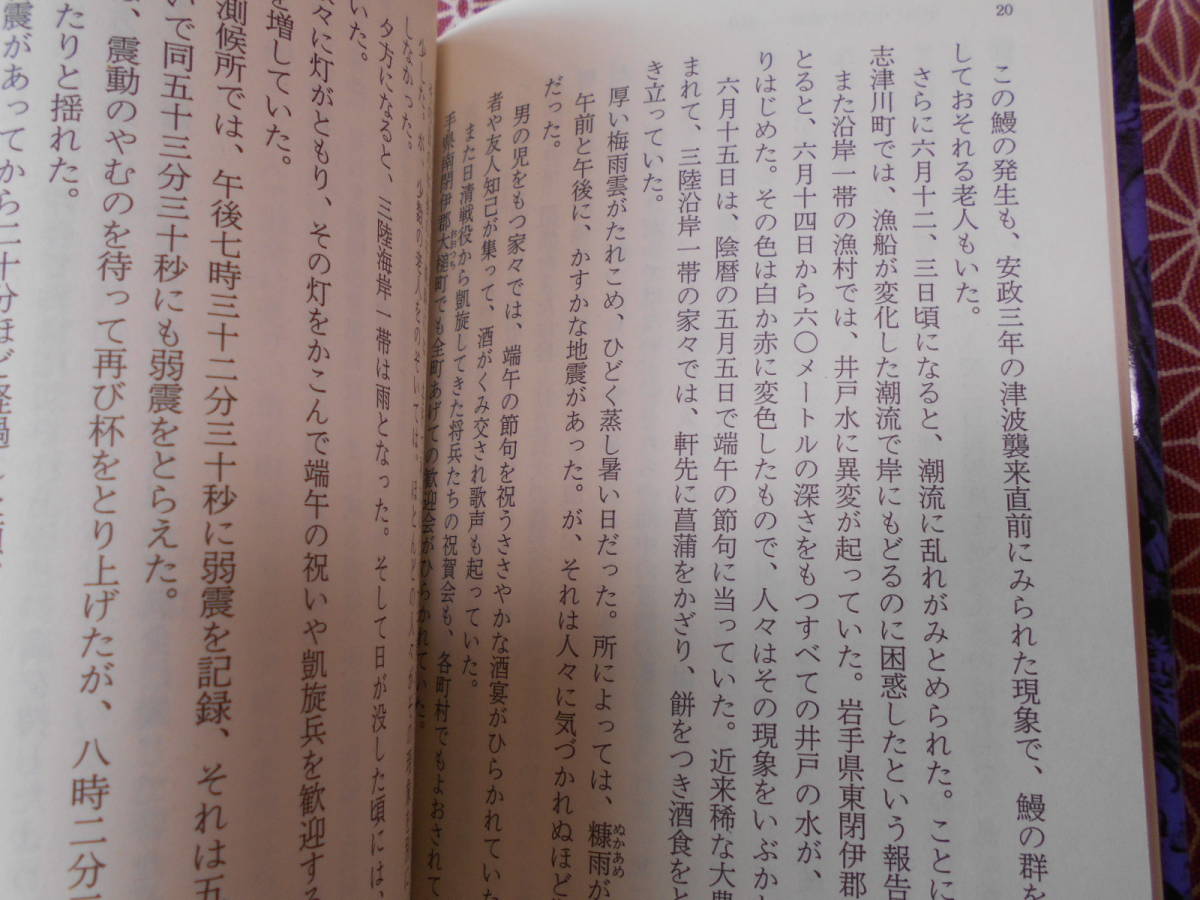 20
この鰻の発生も、安政三年の津波襲来直前にみられた現象で、鰻の群を
しておそれる老人もいた。
さらに六月十二、三日頃になると、潮流に乱れがみとめられた。ことに
志津川町では、漁船が変化した潮流で岸にもどるのに困惑したという報告
また沿岸一帯の漁村では、井戸水に異変が起っていた。岩手県東閉伊郡
とると、六月十四日から六〇メートルの深さをもつすべての井戸の水が、
りはじめた。その色は白か赤に変色したもので、人々はその現象をいぶか
六月十五日は、陰暦の五月五日で端午の節句に当っていた。近来稀な大
まれて、三陸沿岸一帯の家々では、軒先に菖蒲をかざり、餅をつき酒食をと
き立っていた。
厚い梅雨雲がたれこめ、ひどく蒸し暑い日だった。所によっては、糠雨が
ぬかあめ
午前と午後に、かすかな地震があった。が、それは人々に気づかれぬほど
だった。
男の児をもつ家々では、端午の節句を祝うささやかな酒宴がひらかれていた
者や友人知己が集って、酒がくみ交され歌声も起っていた。
また日清戦役から凱旋してきた将兵たちの祝賀会も、各町村でもよおされて
手県南閉伊郡大槌町でも全町あげての歓迎会がひらかれていた。
おおつち
しなかった。
夕方になると、三陸海岸一帯は雨となった。そして日が没した頃には、
いた。
々に灯がともり、その灯をかこんで端午の祝いや凱旋兵を歓迎する
を増していた。
測候所では、午後七時三十二分三十秒に弱震を記録、それは五
いで同五十三分三十秒にも弱震をとらえた。
、震動のやむのを待って再び杯をとり上げたが、八時二分
たりと揺れた。
震があってから二十分ほど経過した